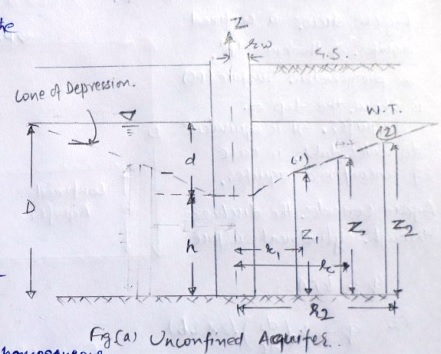 he
Z
rw
G.S.
Cone of Depression.
W.T.
(2)
d
(1)
D
h
Z1
Z
Z2
r1
r
r2
Fig (a) Unconfined Aquifer.